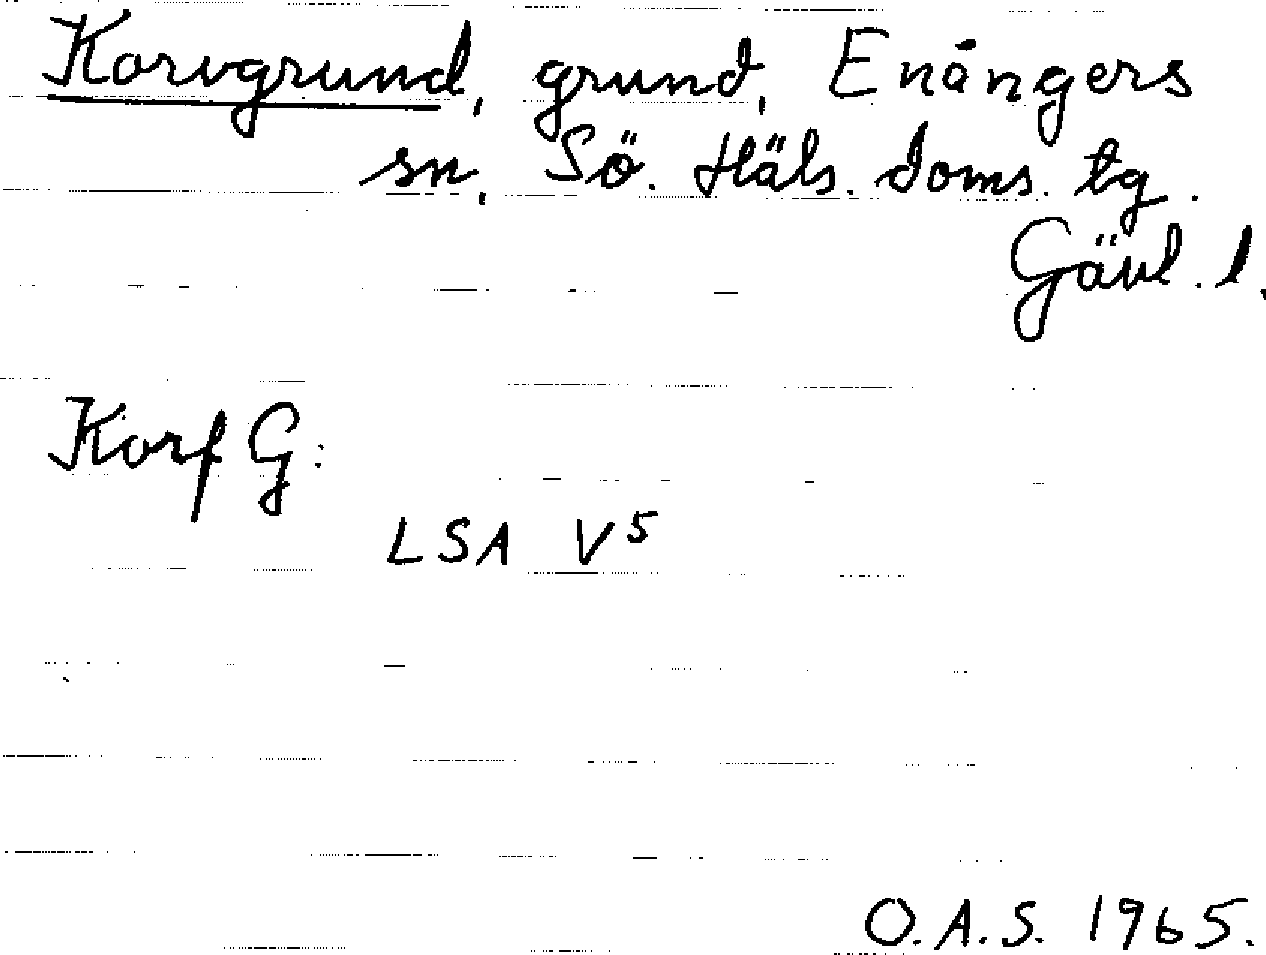 Korvgrund, grund, Enångers
sn, Sö. Häls. doms. tg.
Gävl. l.
Korf G:
LSA V⁵
O.A.S. 1965.